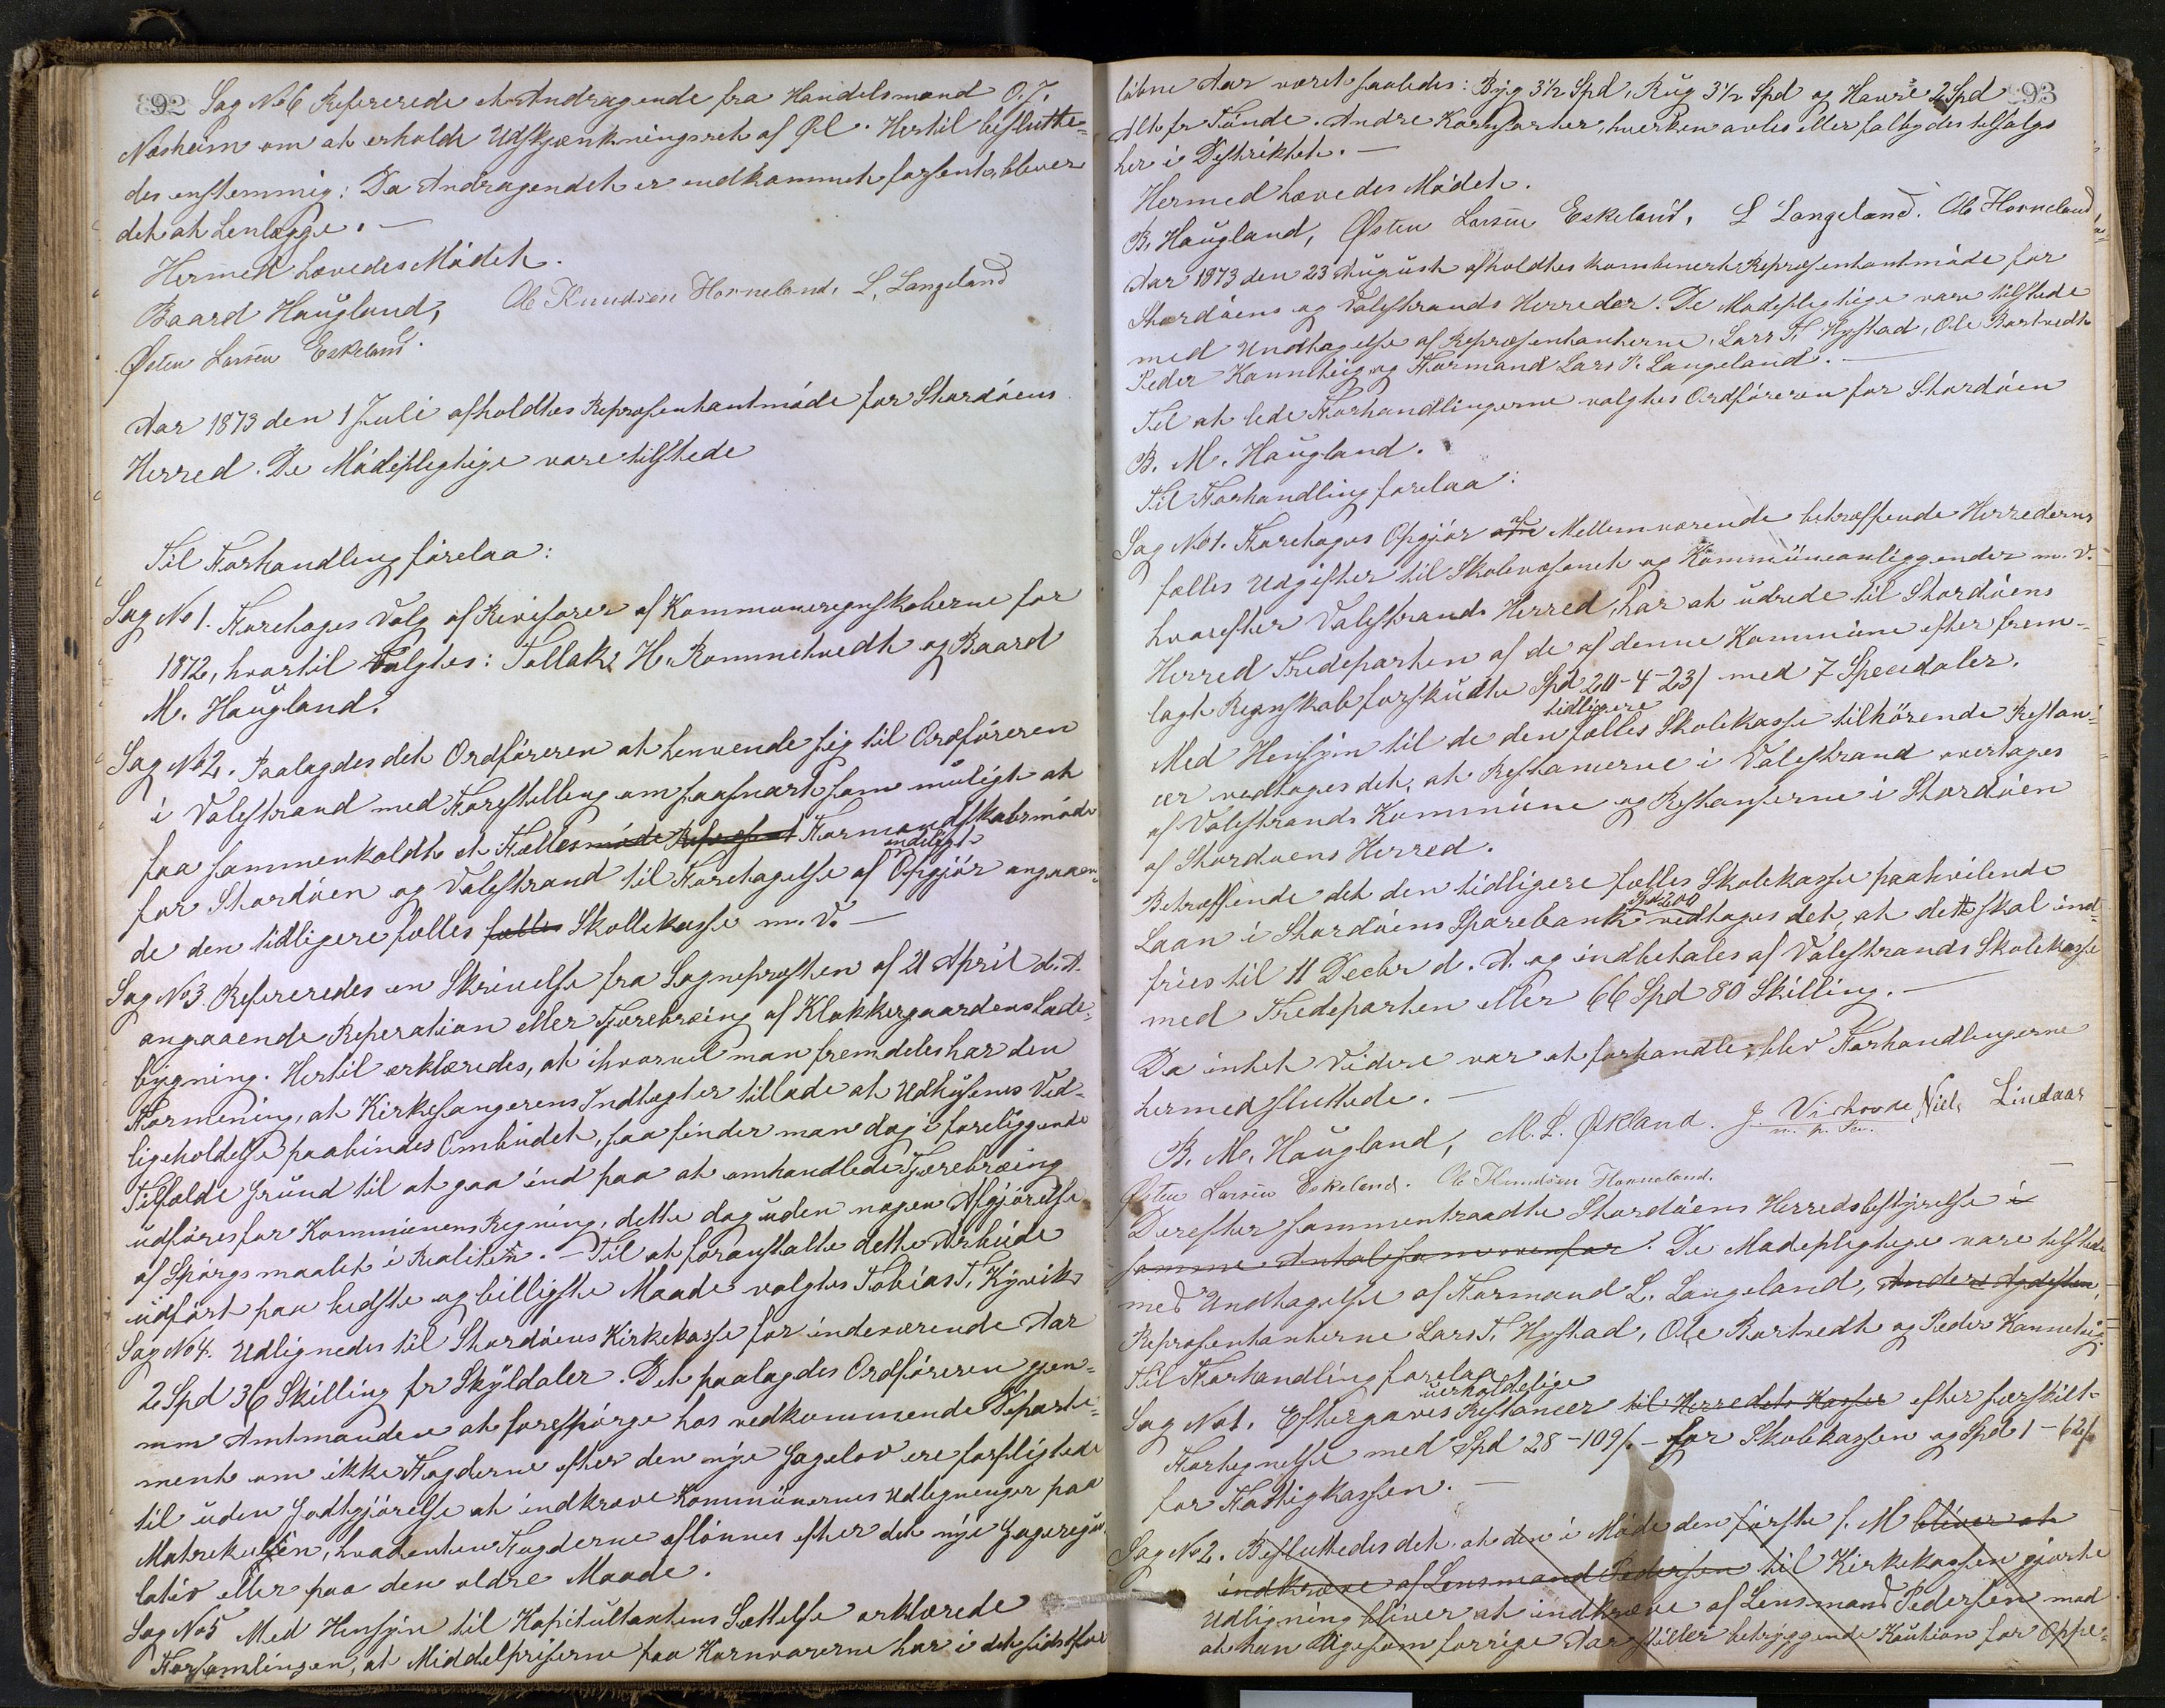 92
Sag No 6 Refererede et Andragende fra Handelsmand O. J.
Næsheim om at erholde Udskjænkningsret af Øl. Hertil beslutte-
des enstemmig: Da Andragendet er indkommet forsent, bliver
det at henlægge. —
Hermed hævedes Mødet.
Baard Haugland, Ole Knudsen Horneland, L. Langeland
Østen Larsen Eskeland.
Aar 1873 den 1 Juli afholdtes Repræsentantmøde for Stordøens
Herred. De Mødepligtige vare tilstede
Til Forhandling forelaa:
Sag No 1. Foretages Valg af Revisorer af Kommuneregnskaberne for
1872, hvortil valgtes: Tollak H. Rommetvedt og Baard
M. Haugland.
Sag No 2. Paalagdes det Ordføreren at henvende sig til Ordføreren
i Valestrand med Forestilling om saasnart som muligt at
faa sammenkaldt et Fællesmøde Repræsent Formandskabsmøde
endeligt
for Stordøen og Valestrand til Foretagelse af Opgjør angaaen-
de den tidligere fælles fælles Skolekasse m. V. —
Sag No 3. Refereredes en Skrivelse fra Sognepræsten af 21 April d. A.
angaaende Reperation eller Tjærebræing af Klokkergaardens Lade-
bygning. Hertil erklæredes, at ihvorvel man fremdeles har den
Formening, at Kirkesangerens Indtægter tillade at Udhusenes Ved-
ligeholdelse paabindes Ombudet, saa finder man dog i foreliggende
Tilfælde Grund til at gaa ind paa at omhandlede Tjærebræing
udføres for Kommunens Regning, dette dog uden nogen Afgjørelse
af Spørgsmaalet i Realiteten. — Til at foranstalte dette Arbeide
udført paa bedste og billigste Maade valgtes Tobias T. Kyvik
Sag No 4. Udlignedes til Stordøens Kirkekasse for indeværende Aar
2 Spd 36 Skilling pr Skyldaler. Det paalagdes Ordføreren gjen-
nem Amtmanden at forespørge hos vedkommende Departe-
ment om ikke Fogderne efter den nye Gagelov ere forpligtede
til uden Godtgjørelse at indkræve Kommunernes Udligninger paa
Matrikulen, hvadenten Fogderne aflønnes efter det nye Gageregu-
lativ eller paa den ældre Maade.
Sag No 5 Med Hensyn til Kapitultaxtens Sættelse erklærede
Forsamlingen, at Middelpriserne paa Kornvarerne har i det sidstfor-
93
løbne Aar været saaledes: Byg 3½ Spd, Rug 3½ Spd og Havre 2 Spd
Alt pr Tønde. Andre Kornsorter, hverken avles eller falbydes tilsalgs
her i Distriktet. —
Hermed hævedes Mødet.
B. Haugland, Østen Larsen Eskeland, L Langeland. Ole Horneland
Aar 1873 den 23 August afholdtes kombineret Repræsentantmøde for
Stordøens og Valestrands Herreder. De Mødepligtige vare tilstede
med Undtagelse af Repræsentanterne, Lars T. Hystad, Ole Bortvedt
Peder Kannelvig og Formand Lars P. Langeland. —
Til at lede Forhandlingerne valgtes Ordføreren for Stordøen
B. M. Haugland.
Til Forhandling forelaa:
Sag No 1. Foretages Opgjør af Mellemværende betræffende Herredernes
fælles Udgifter til Skolevæsenet og Kommuneanliggender m. V.
hvorefter Valestrands Herred, har at udrede til Stordøens
Herred Tredeparten af de af denne Kommune efter frem-
lagt Regnskab forskudte Spd 20-4-23/ med 7 Speciedaler.
tidligere
Med Hensyn til de den fælles Skolekasse tilhørende Restan-
cer vedtages det, at Restancerne i Valestrand overtages
af Valestrands Kommune og Restanserne i Stordøen
af Stordøens Herred.
Betræffende det den tidligere fælles Skolekasse paahvilende
Spd 200
Laan i Stordøens Sparebank vedtages det, at dette skal ind-
fries til 11 Decbr d. A. og indbetales af Valestrands Skolekasse
med Tredeparten eller 66 Spd 80 Skilling. —
Da intet videre var at forhandle, blev Forhandlingerne
hermed sluttede. —
B. M. Haugland, M. L. Økland. J. Vishovde, Niels Lindaas
m. p. Pen.
Østen Larsen Eskeland. Ole Knudsen Horneland.
Derefter sammentraadte Stordøens Herredsbestyrelse i
samme Antal som ovenfor. De Mødepligtige vare tilstede
med Undtagelse af Formand L. Langeland,
Repræsentanterne Lars T. Hystad, Ole Bortvedt og Peder Kannelvig.
Til Forhandling forelaa
uerholdelige
Sag No 1. Eftergaves Restancer til Herredets Kasser efter særskilt
Fortegnelse med Spd 28 - 109/. - for Skolekassen og Spd 1 - 62/
for Fattigkassen. —
Sag No 2. Besluttedes det, at den i Møde den første s. M bliver at
indkræve af Lensmand Pedersen til Kirkekassen gjorte
Udligning bliver at indkræve af Lensmand Pedersen mod
at han ligesom forrige Aar stiller betryggende Kaution for Oppe-